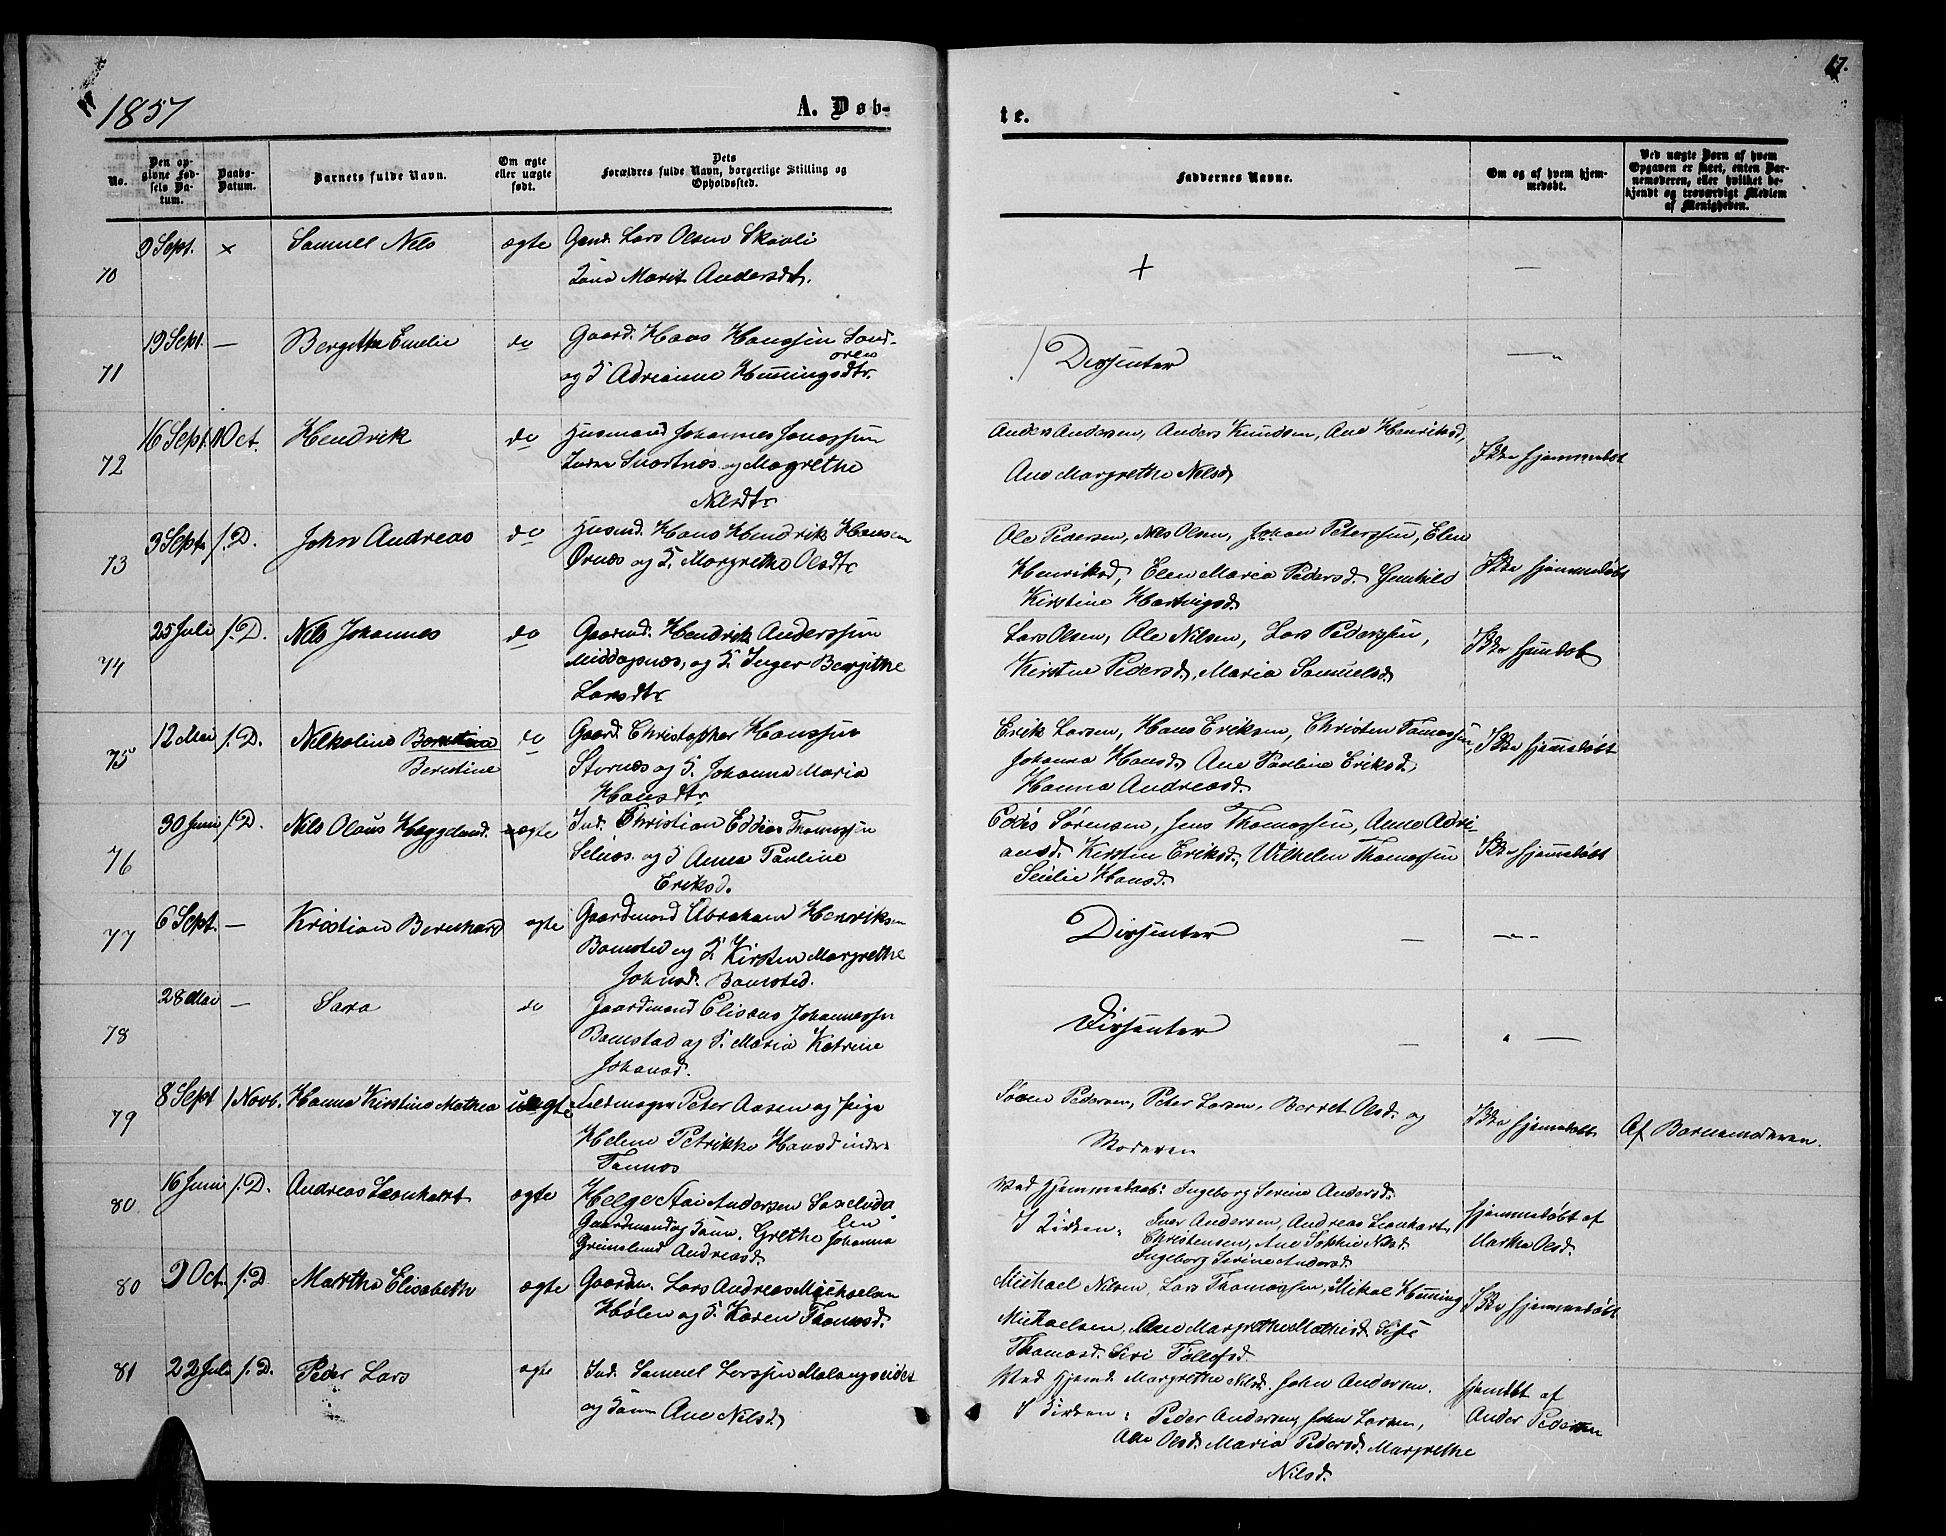 1857
A. Døb-
te.
17.
No.
Den op-
givne Fød-
sels Da-
tum.
Daabs-
Datum.
Barnets fulde Navn.
Om ægte
eller uægte
født.
Dets
Forældres fulde Navn, borgerlige Stilling og
Opholdssted.
Faddernes Navne.
Om og af hvem hjem-
medøbt.
Ved uægte Børn af hvem
Opgaven er skeet, enten Bar-
nemoderen, eller hvilket be-
kjendt og troværdigt Medlem
af Menigheden.
70 9 Sept. × Samuel Nils ægte Gmd. Lars Olsen Skavli
Marit Andersdt.
+ —
71 19 Sept. — Bergitta Emelie do Gaard. Hans Hanssen Sand-
øren
og H Adriane Hemingsdtr.
Dissenter —„
72 16 Sept. 1 Oct. Hendrik do Husmand Johannes Jonassen
Indre Svartnæs og Magrethe
Nilsdtr
Anders Andersen, Anders Knudsen, Ane Henriksd,
Ane Margrethe Nilsd,
Ikke hjemmedøbt
73 3 Sept. /.D. John Andreas do Husmd. Hans Hendrik Hansen
Ørnæs og H. Margrethe Olsdtr
Ole Pedersen, Nils Olsen, Johan Peterssen, Elen
Henriksd, Elen Maria Pedersd. Gunhild
Kirstine Hartvigsd.
Ikke hjemmedøbt
74 25 Juli /.D. Nils Johannes do Gaarmd. Hendrik Anderssen
Middagsnæs, og H. Inger Bergithe
Larsdtr
Lars Olsen, Ole Nilsen, Lars Pederssen,
Kirsten Pedersd, Maria Samuelsd.
Ikke hjemdøbt
75 12 Mai /.D. Nilkoline Berntine
Berntine
do Gaard. Christopher Hanssen
Stornæs og H. Johanna Maria
Hansdtr
Erik Larsen, Hans Eriksen, Christen Tomassen,
Johanna Hansd, Ane Pauline Eriksd,
Hanna Andreasd.
Ikke hjemedøbt
76 30 Juni /.D. Nils Olaus Hæggelund. uægte Ind. Christian Eddias Thomassen
Selnæs. og H Anna Pauline
Eriksd.
Eddis Sørensen, Jens Thomassen, Anne Adri-
ansd. Kirsten Eriksd, Wilhelm Thomassen
Seselie Hansd.
Ikke hjemedøbt
77 6 Sept. — Kristian Bernhard ægte Gaardmand Abraham Henriksen
Bomsted og H Kirsten Margrethe
Johnsd. Bomsted.
Dissenter —
78 28 Mai — Sara do Gaardmand Elisæus Johannessen
Bomstad og H. Maria Katrine
Johansd.
Dissenter —
79 8 Sept 1 Novb. Hanna Kirstine Mathea uægte Feldmager Peter Aasen og Pige
Helene Petrikke Hansd indre
Tamnæs
Søren Pedersen, Peter Larsen, Berret Olsd. og
Moderen
Ikke hjemedøbt
Af Barnemoderen.
80 16 Juni /.D. Andreas Leonhart ægte Helge Andersen
Gaardmand og Grethe Johanna
Andreasd.
Ved Hjemmedaab: Ingeborg Serine Andersd.
I Kirken: Iver Andersen, Andreas Leonhart
Christensen, Ane Sophie Nilsd.
Ingeborg Serine Andersd.
hjemmedøbt af
Martha Olsd.
80 9 Oct. /.D Martha Elisabeth ægte Gaardm. Lars Andreas Michaelsen
Hølen og H Karen Thomasd.
Michael Nilsen, Lars Thomassen, Mikal Henning
Michaelsen, Ane Margrethe Mathisd.
Thomasd. Siri Tollefsd.
Ikke hjemmedøbt
81 22 Juli /.D. Peder Lars ægte Ind. Samuel Larssen Malangseidet
og Ane Nilsd,
Ved Hjemd. Margrethe Nilsd. John Andersen.
I Kirken: Peder Andersen, John Larsen,
Olsd. Maria Pedersd. Margrethe
Nilsd.
hjemdøbt af
Ander Pedersen